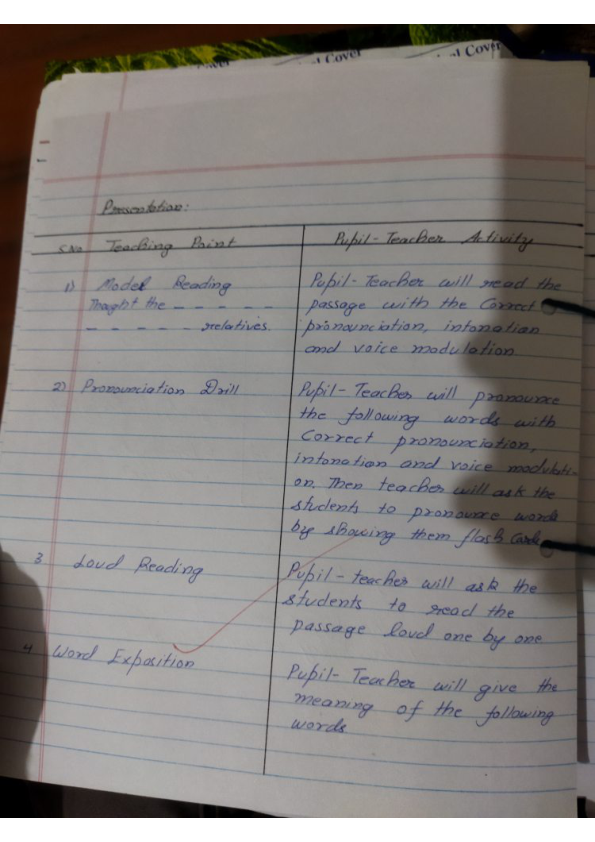 Cover
al Cover
al Cover
Presentation:
S.No Teaching Point Pupil-Teacher Activity
1) Model Reading Pupil-Teacher will read the
Thought the _ _ _ _ _ passage with the Correct
_ _ _ _ _ relatives. pronounciation, intonation
and voice modulation.
2) Pronounciation Drill Pupil-Teacher will pronounce
the following words with
Correct pronounciation,
intonation and voice modulati-
on. Then teacher will ask the
students to pronounce words
by showing them flash Cards
3 Loud Reading Pupil-teacher will ask the
students to read the
passage loud one by one
4 Word Exposition Pupil-Teacher will give the
meaning of the following
words